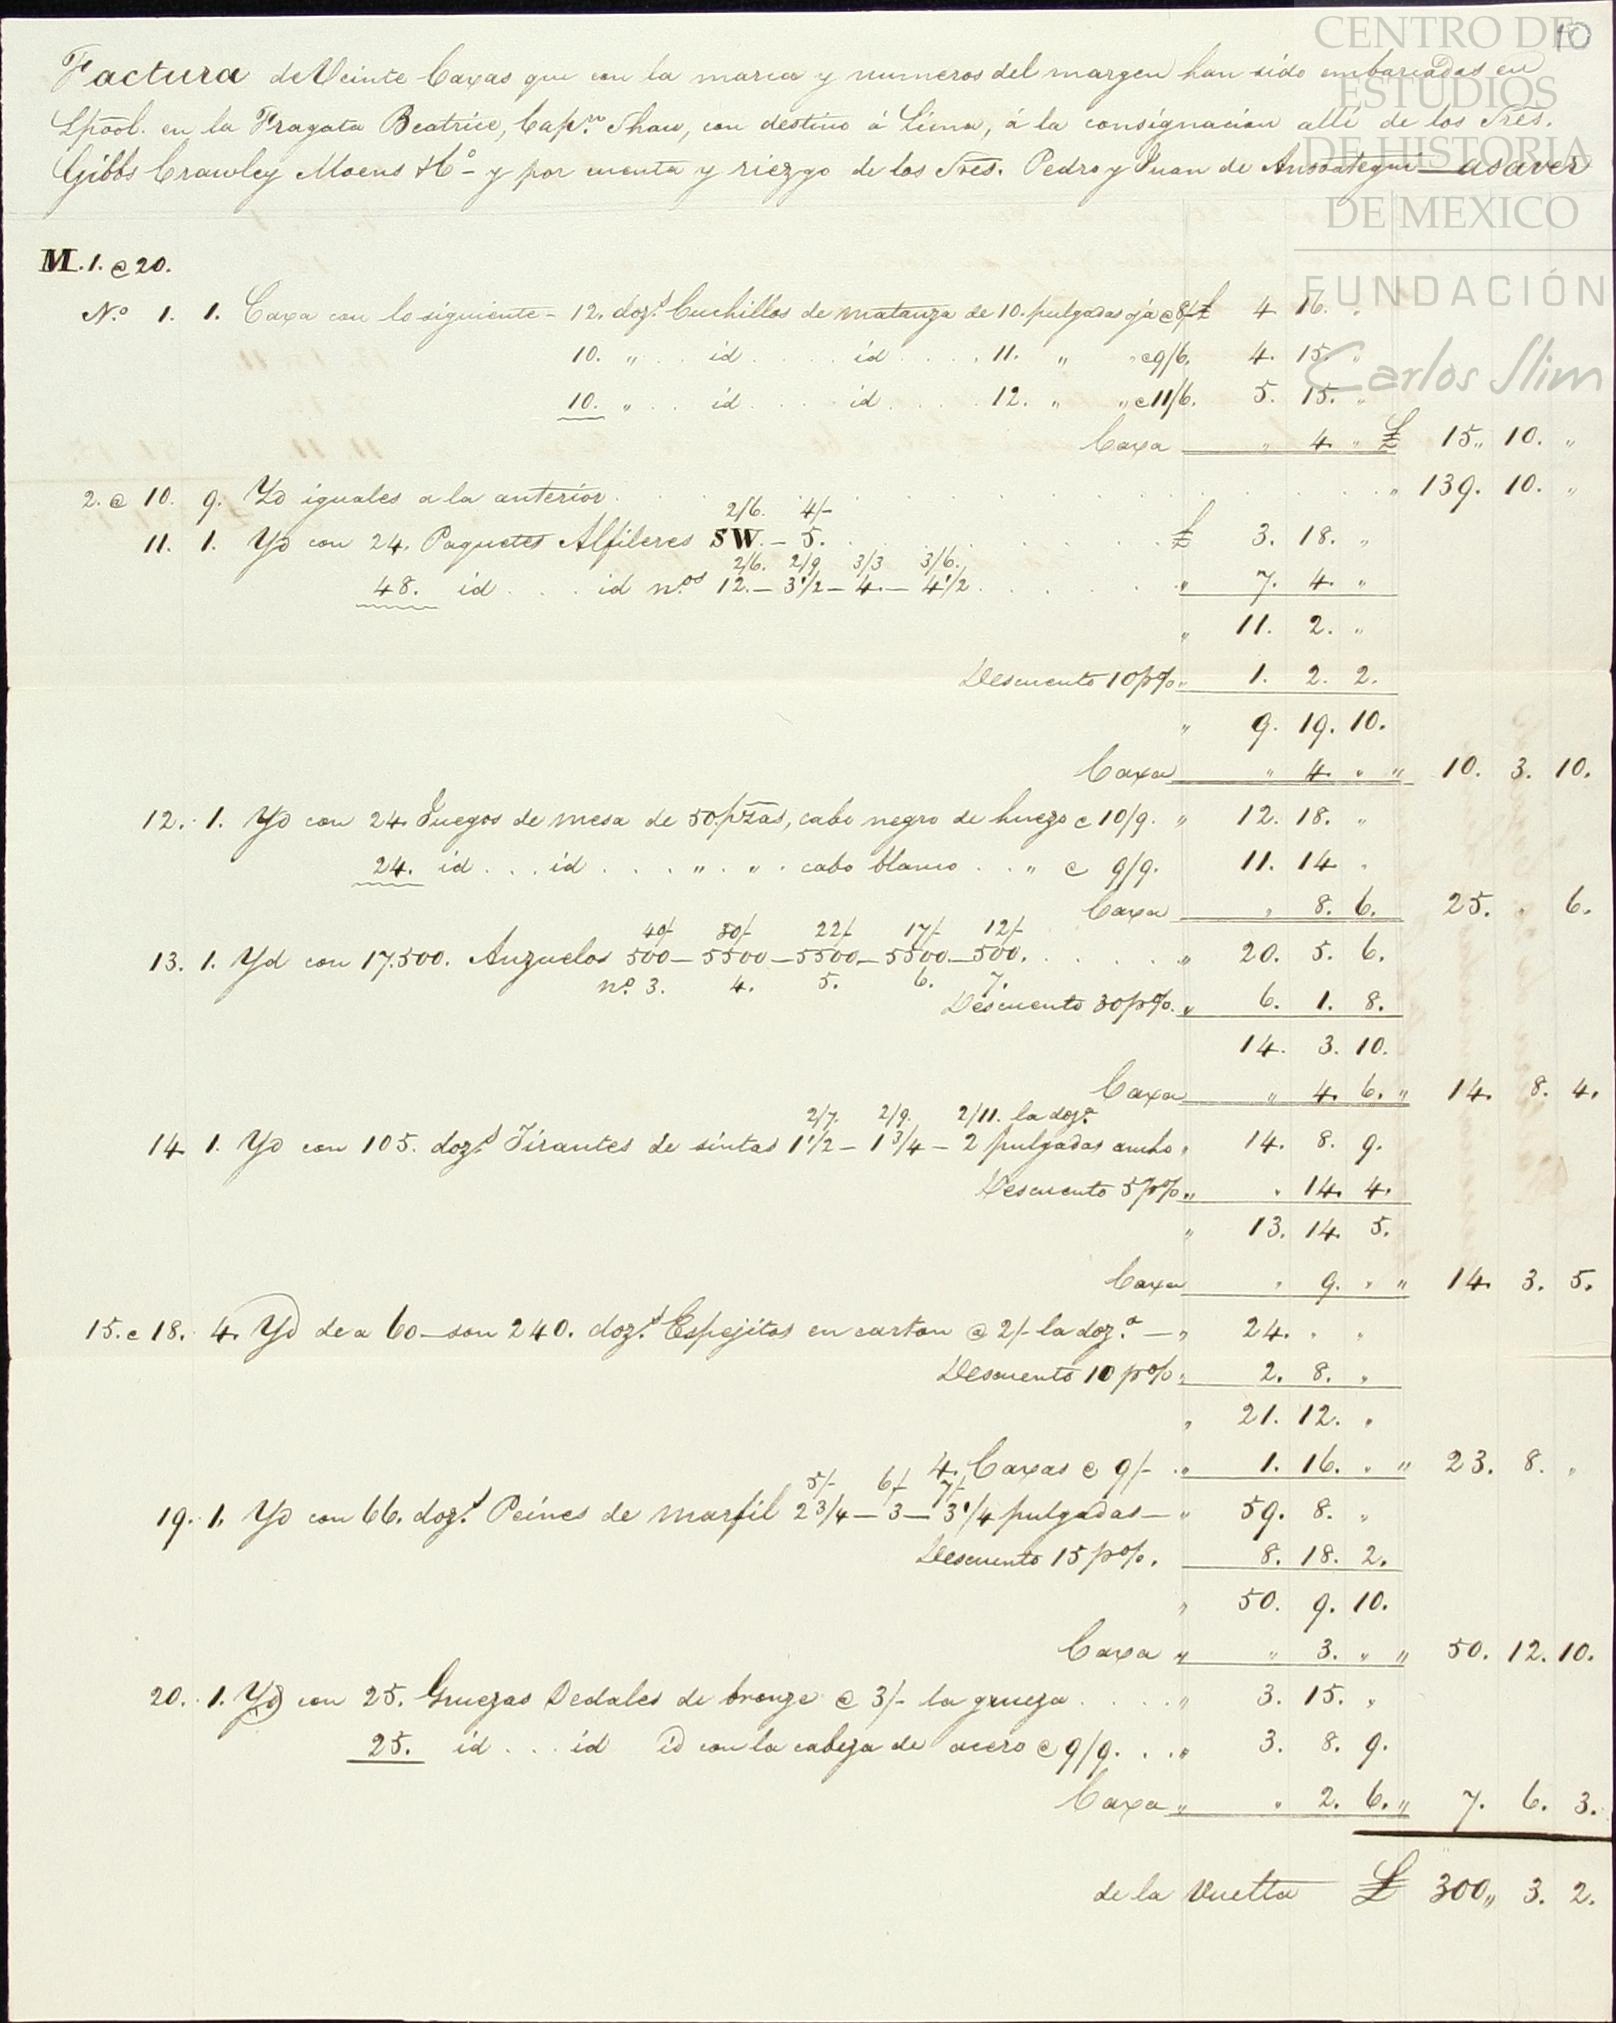 CENTRO DE
ESTUDIOS
DE HISTORIA
DE MEXICO
FUNDACIÓN
Carlos Slim
10
Factura de Veinte Caxas que con la marca y numeros del margen han sido embarcadas en
Lpool. en la Fragata Beatrice, Capn. Shaw, con destino á Lima, á la consignacion alli de los Sres.
Gibbs Crawley Moens & Co - y por cuenta y riezgo de los Sres. Pedro y Juan de Ansoategui — asaver
M. 1. @ 20.
No. 1. 1. Caxa con lo siguiente = 12. dozs. Cuchillos de matanza de 10. pulgadas oja @ 8/ £ 4 16. "
10. " . . id . . . . id . . . . 11. " " @ 9/6. 4. 15. "
10. " . . id . . . . id . . . . 12. " " @ 11/6. 5. 15. "
Caxa " 4. " £ 15,, 10. "
2. @ 10. 9. Yd iguales a la anterior . . . . " 139. 10. "
2/6. 4/-
11. 1. Yd con 24. Paquetes Alfileres SW. — 5. . . . . £ 3. 18. "
2/6. 2/9 3/3 3/6.
48. id . . . id nos. 12. — 3 1/2 — 4. — 4 1/2 . . . . " 7. 4. "
" 11. 2. "
Descuento 10 p% " 1. 2. 2.
" 9. 19. 10.
Caxa " 4. " " 10. 3. 10.
12. 1. Yd con 24. Juegos de mesa de 50. pzas, cabo negro de huezo @ 10/9. " 12. 18. "
24. id . . . id . . . " . " . cabo blanco . . " @ 9/9. 11. 14 "
Caxa " 8. 6. 25. " 6.
40/- 30/- 22/- 17/- 12/-
13. 1. Yd con 17.500. Anzuelos 500 — 5500 — 5500 — 5500 — 500. . . . " 20. 5. 6.
no. 3. 4. 5. 6. 7.
Descuento 30 p%. " 6. 1. 8.
14. 3. 10.
Caxa " 4. 6. " 14. 8. 4.
2/7. 2/9. 2/11. la doza.
14 1. Yd con 105. dozs. Tirantes de sintas 1 1/2 — 1 3/4 — 2 pulgadas ancho " 14. 8. 9.
Descuento 5 p% " " 14. 4.
" 13. 14. 5.
Caxa " 9. " " 14. 3. 5.
15. @ 18. 4. Yd de a 60 — son 240. dozs. Espejitos en carton @ 2/- la doz.a — " 24. " "
Descuento 10 p% " 2. 8. "
" 21. 12. "
4. Caxas @ 9/- . " 1. 16. " " 23. 8. "
5/- 6/- 7/-
19. 1. Yd con 66. dozs. Peines de marfil 2 3/4 — 3 — 3 1/4 pulgadas — " 59. 8. "
Descuento 15 p%. 8. 18. 2.
" 50. 9. 10.
Caxa " " 3. " " 50. 12. 10.
20. 1. Yd con 25. Gruezas Dedales de bronze @ 3/- la grueza . . . . " 3. 15. "
25. id . . . id id con la cabeza de acero @ 9/9. . . " 3. 8. 9.
Caxa " " 2. 6. " 7. 6. 3.
de la Vuelta £ 300,, 3. 2.